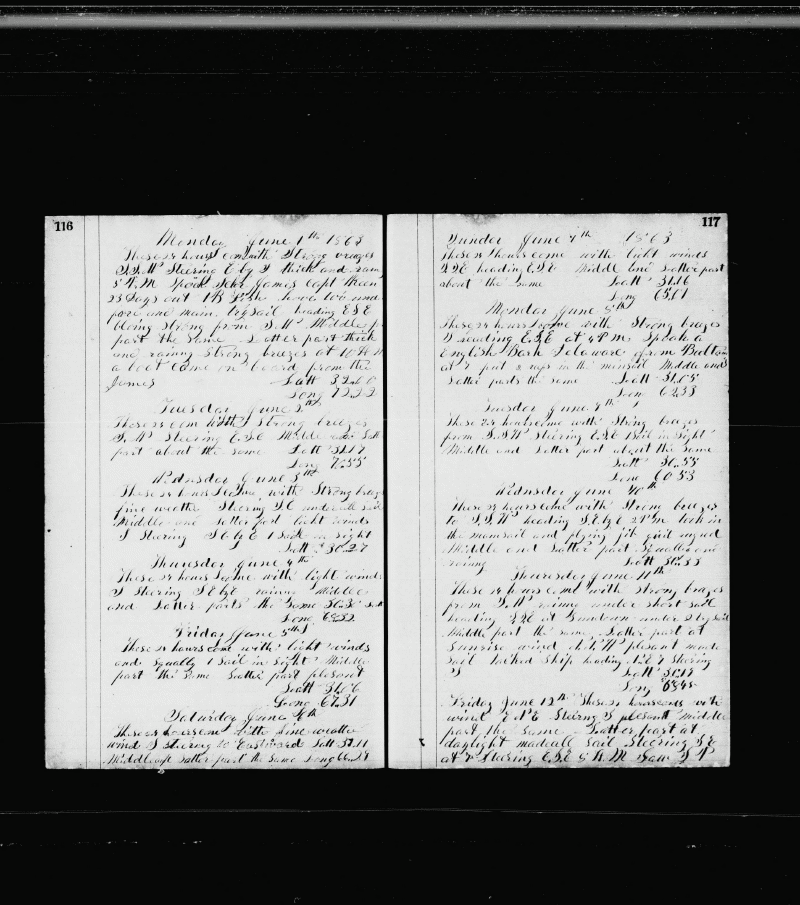 116
Monday June 1th 1863
These 24 hours com with Strong breezes
S.S.W Steering E by S thick and rainy
5 P.M. Spoik Schr James Capt
23 Days out 1 B Fish hove too unde
fore and main trysail heading ESE
bloing strong from S.W Middle
part the same Latter part thick
and rainy Strong breezes at 10 A M
a boat came on board from the
James Latt
Long
Tuesday June 2th
These 24 com with strong breezes
S.W Steering E.S.E Middle and Latt
part about the same Latt 31.17
Long
Wednsday June 3th
These 24 hours come with Strong breezes
fine weather Stering S.E under all sail
Middle and Latter part light winds
S Steering S by E 1 Sail in sight
Latt 30.27
Thursday June 4th
These 24 hours come with light winds
S Steering S E by E rainy Middle
and Latter parts the same
Long
Friday June 5th
These 24 hours come with light winds
and squally 1 Sail in Sight Middle
part the same Latter part plesant
Latt
Long 67.31
Saturday June 6th
These 24 hours come with fine weather
wind S stering to Eastward Latt 31.11
Middle and Latter part the same Long
117
Sunday June 7th 1863
These 24 hours come with light winds
S.S.E heading E.S.E Middle and Latter part
about the same Latt 31.16
Long
Monday June 8th
These 24 hours come with Strong breezes
S heading E.S.E at 4 P.M. Spoke a
English Bark Delaware from
at 7 put 2 reefs in the mainsail Middle and
Latter parts the same Latt 31.05
Long 62.33
Tuesday June 9th
These 24 hours come with Strong breezes
from S.S.W Stering E.S.E 1 Sail in sight
Middle and Latter part about the same
Latt 30.55
Long 60.53
Wednsday June 10th
These 24 hours come with Strong breezes
to S.S.W heading S.E by E 2 P.M. took in
the mainsail and flying jib and
Middle and Latter part Squally and
rainy Latt
Thuresday June 11th
These 24 hours come with strong breezes
from S.W rainy under short sail
heading S.S.E at Sundown under
Middle part the same Latter part at
Sunrise wind plesant made
sail tacked Ship heading Stering
S Latt 30.17
Long
Friday June 12th These 24 hours com with
wind E N E Stering S plesant Middle
part the same Latter part at
daylight made all Sail Steering S E
at Stering E.S.E 5 A.M. Saw